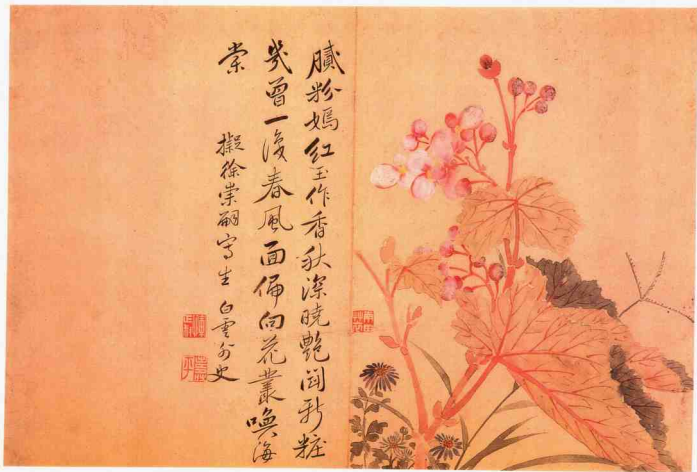 膩粉嫣紅玉作香秋深曉艷鬥新粧
幾曾一春風面偏向花叢喚海
棠
擬徐崇嗣寫生 白雲外史